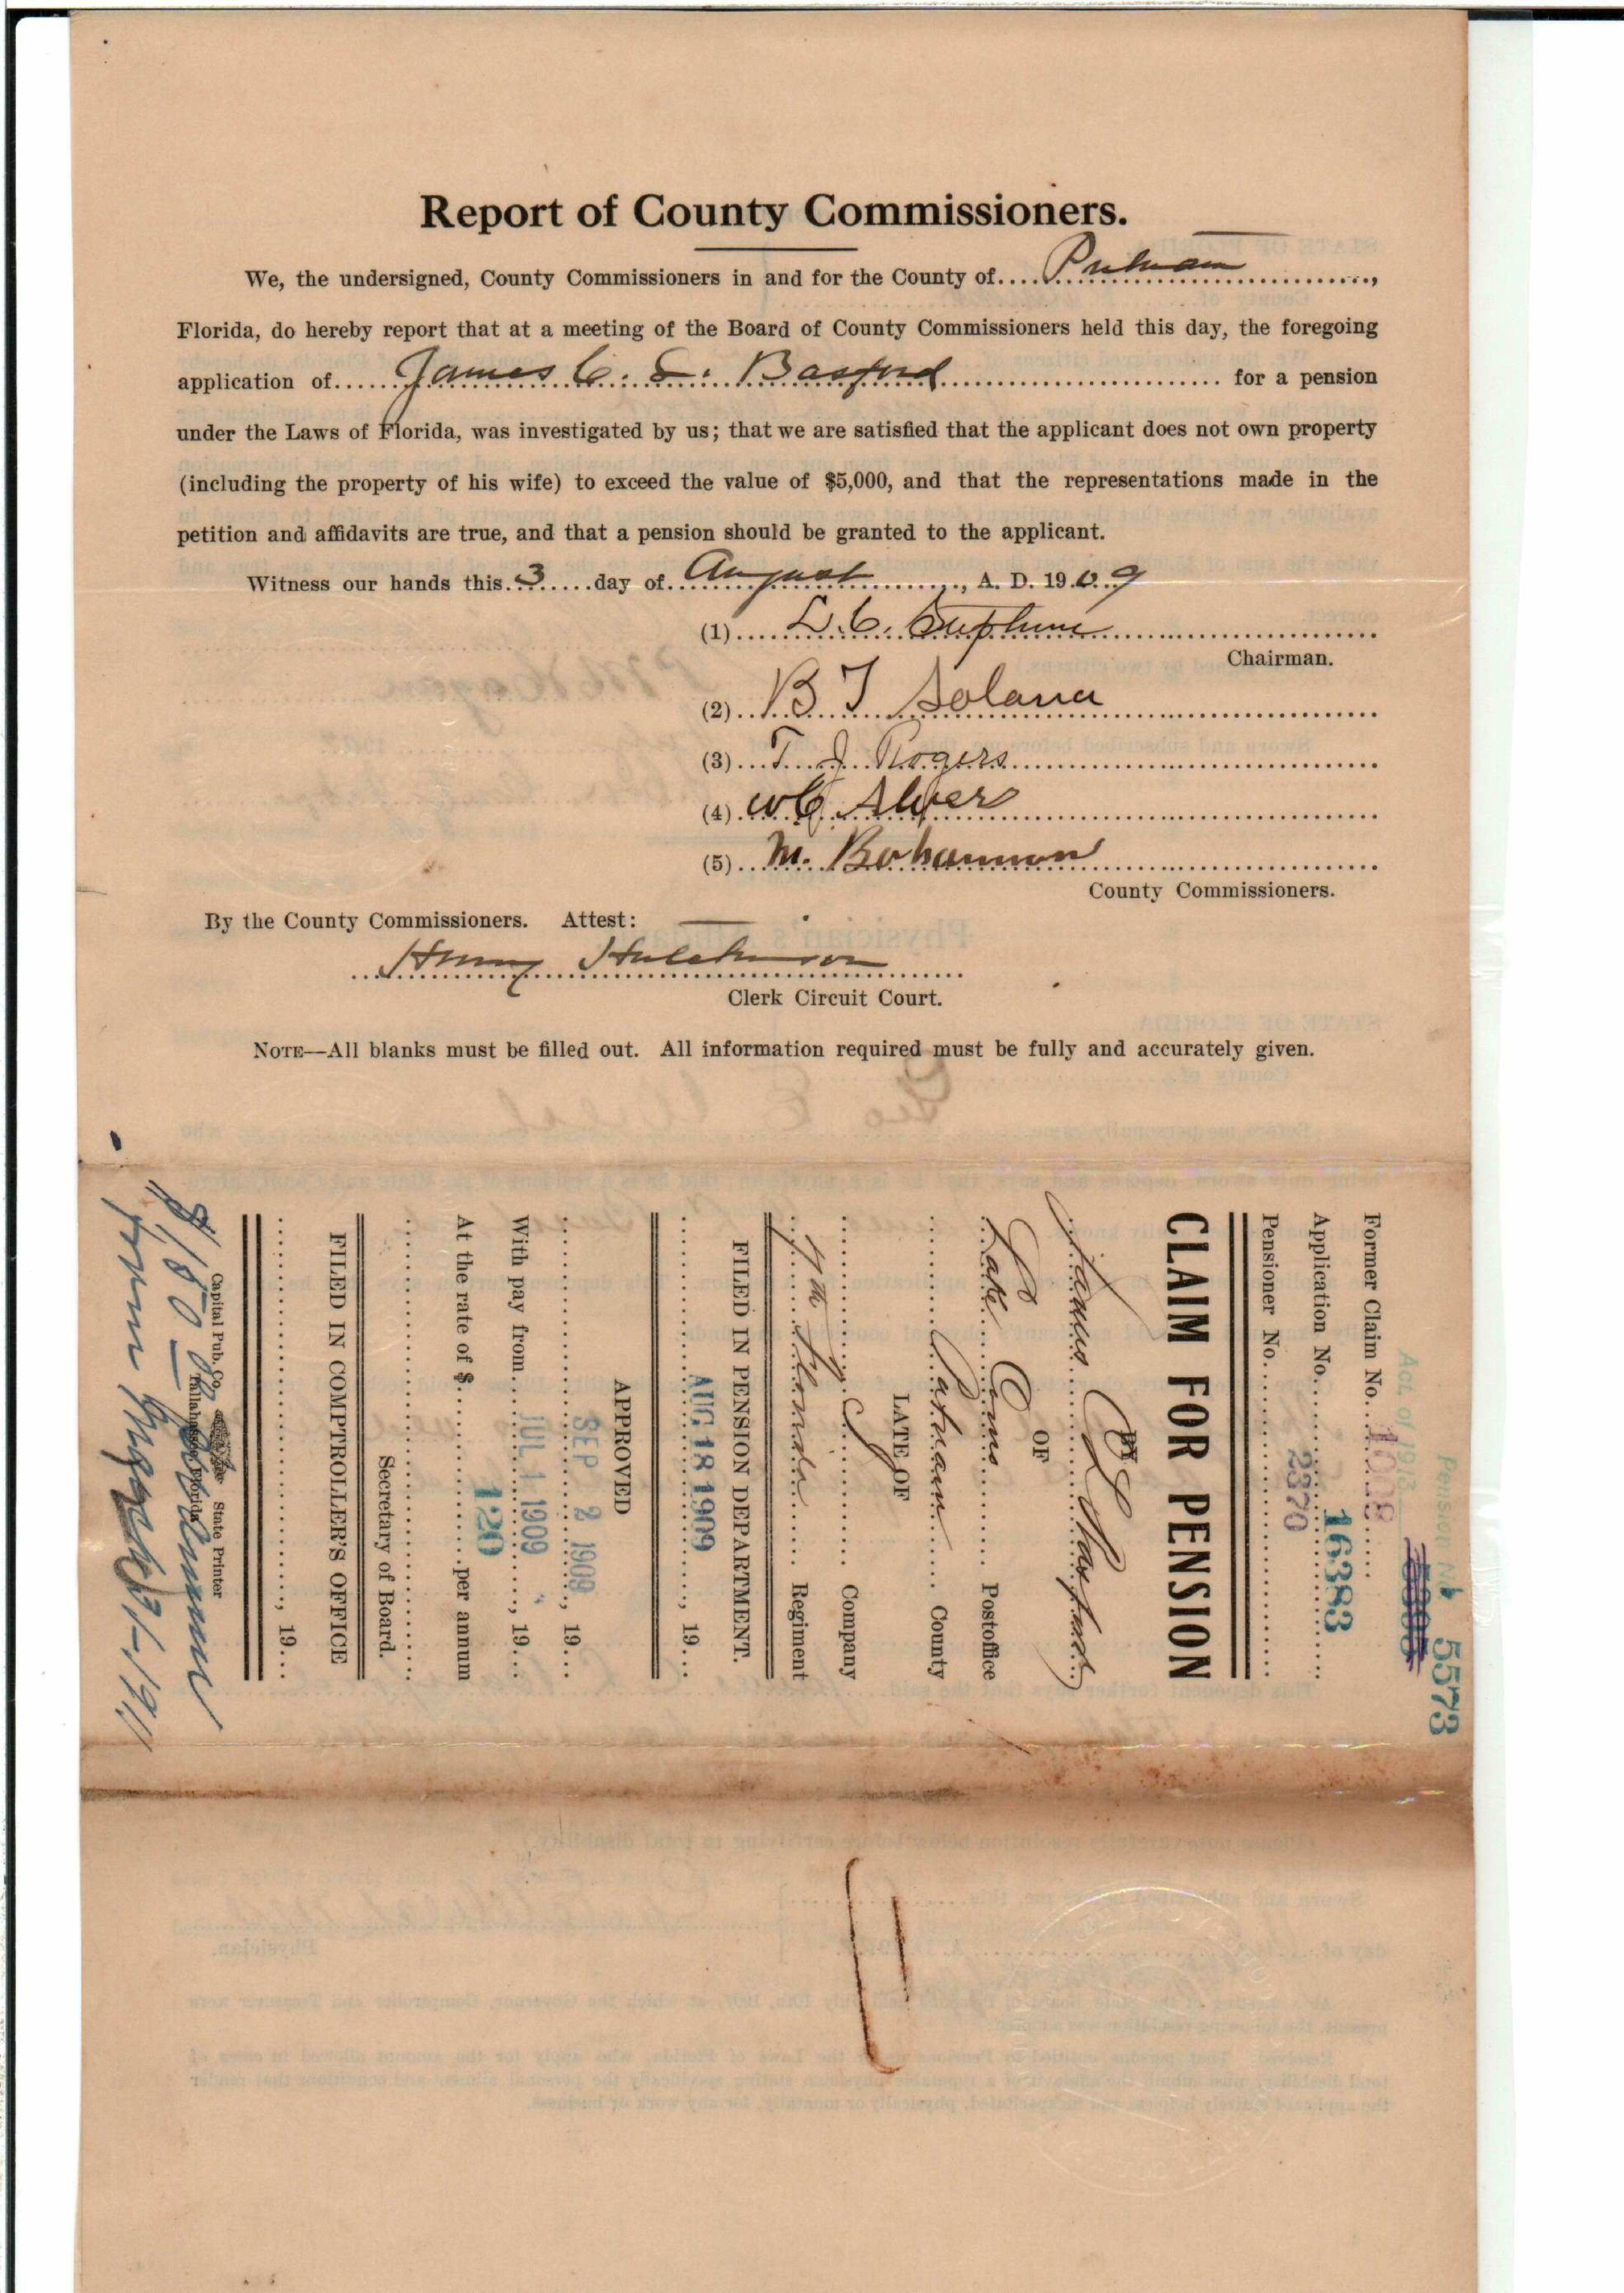 Report of County Commissioners.
We, the undersigned, County Commissioners in and for the County of....Putnam....,
Florida, do hereby report that at a meeting of the Board of County Commissioners held this day, the foregoing
application of......James C. L. Basford...... for a pension
under the Laws of Florida, was investigated by us; that we are satisfied that the applicant does not own property
(including the property of his wife) to exceed the value of $5,000, and that the representations made in the
petition and affidavits are true, and that a pension should be granted to the applicant.
Witness our hands this 3 day of August, A. D. 1909
(1) L. C. Stephens
Chairman.
(2) B T Solana
(3) T. J. Rogers
(4) W C
(5) M. Bohannon
County Commissioners.
By the County Commissioners. Attest:
Henry Hutchinson
Clerk Circuit Court.
NOTE—All blanks must be filled out. All information required must be fully and accurately given.
Act. of 1913 Pension No. 5573
Former Claim No.
Application No. 16383
2370
Pensioner No.
CLAIM FOR PENSION
BY
James C L Basford
OF
Lake Como Postoffice
Putnam County
LATE OF
Company
7th Florida Regiment
FILED IN PENSION DEPARTMENT.
AUG 18 1909, 19
APPROVED
SEP 2 1909, 19
With pay from JUL 1 1909, 19
At the rate of $ 120 per annum
Secretary of Board.
FILED IN COMPTROLLER'S OFFICE
, 19
Capital Pub. Co. State Printer
Tallahassee, Florida
$150 per annum
from 1911